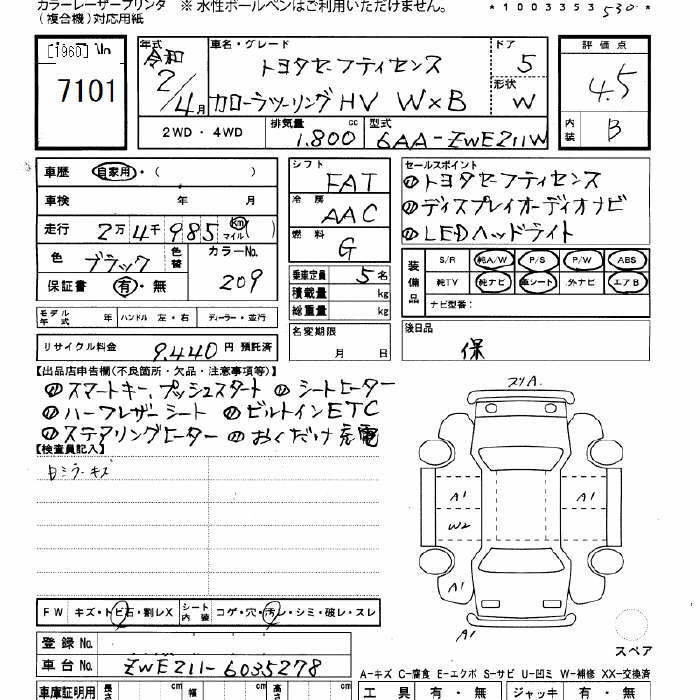 カラーレーザープリンタ ※水性ボールペンはご利用いただけません。
(複合機)対応用紙
*1003353 530*
[1960]
7101
年式 令和 2/4月
車名・グレード トヨタセーフティセンス
カローラツーリングHV W×B
ドア 5
形状 W
評価点 4.5
内装 B
2WD・4WD
排気量 1.800 cc
型式 6AA-ZWE211W
車歴 自家用・( )
車検 年 月
走行 2万4千985 km マイル
色 ブラック 色替
カラーNo. 209
保証書 有・無
シフト FAT
冷房 AAC
燃料 G
乗車定員 5名
積載量 kg
総重量 kg
セールスポイント
トヨタセーフティセンス
ディスプレイオーディオナビ
LEDヘッドライト
装備品 S/R 純A/W P/S P/W ABS
純TV 純ナビ 革シート 外ナビ エアB
ナビ型番:
モデル年式 年 ハンドル 左・右 ディーラー・並行
リサイクル料金 9.440円 預託済
名変期限 月 日
後日品 保
【出品店申告欄(不良箇所・欠品・注意事項等)】
スマートキー、プッシュスタート シートヒーター
ハーフレザーシート ビルトインETC
ステアリングヒーター おくだけ充電
【検査員記入】
内ミラーキズ
スリA.
A1 A1
W2
A1
A1
スペア
FW キズ・トビ石・割レX シート内装 コゲ・穴・汚レ・シミ・破レ・スレ
登録No.
車台No. ZWE211-6035278
A-キズ C-腐食 E-エクボ S-サビ U-凹ミ W-補修 XX-交換済
車庫証明用 長さ cm 幅 cm 高さ cm
工具 有・無 ジャッキ 有・無